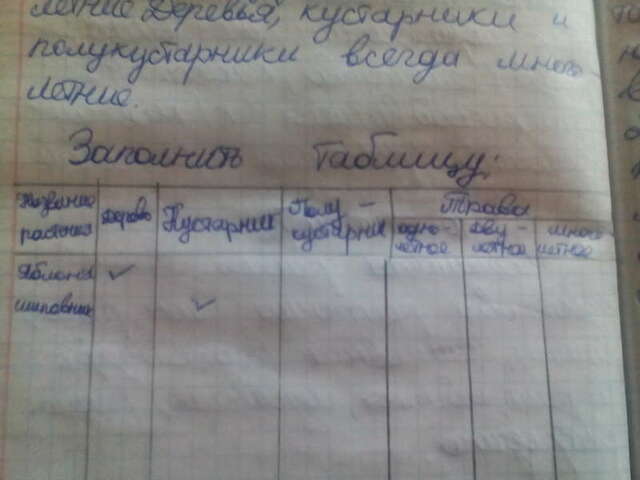 летние Деревья, кустарники и
полукустарники всегда много
летние.
Заполнить таблицу:
Название растения Дерево Кустарник Полу-кустарник Трава
одно-летное дву-летное много летное
Яблоня ✓
шиповник ✓